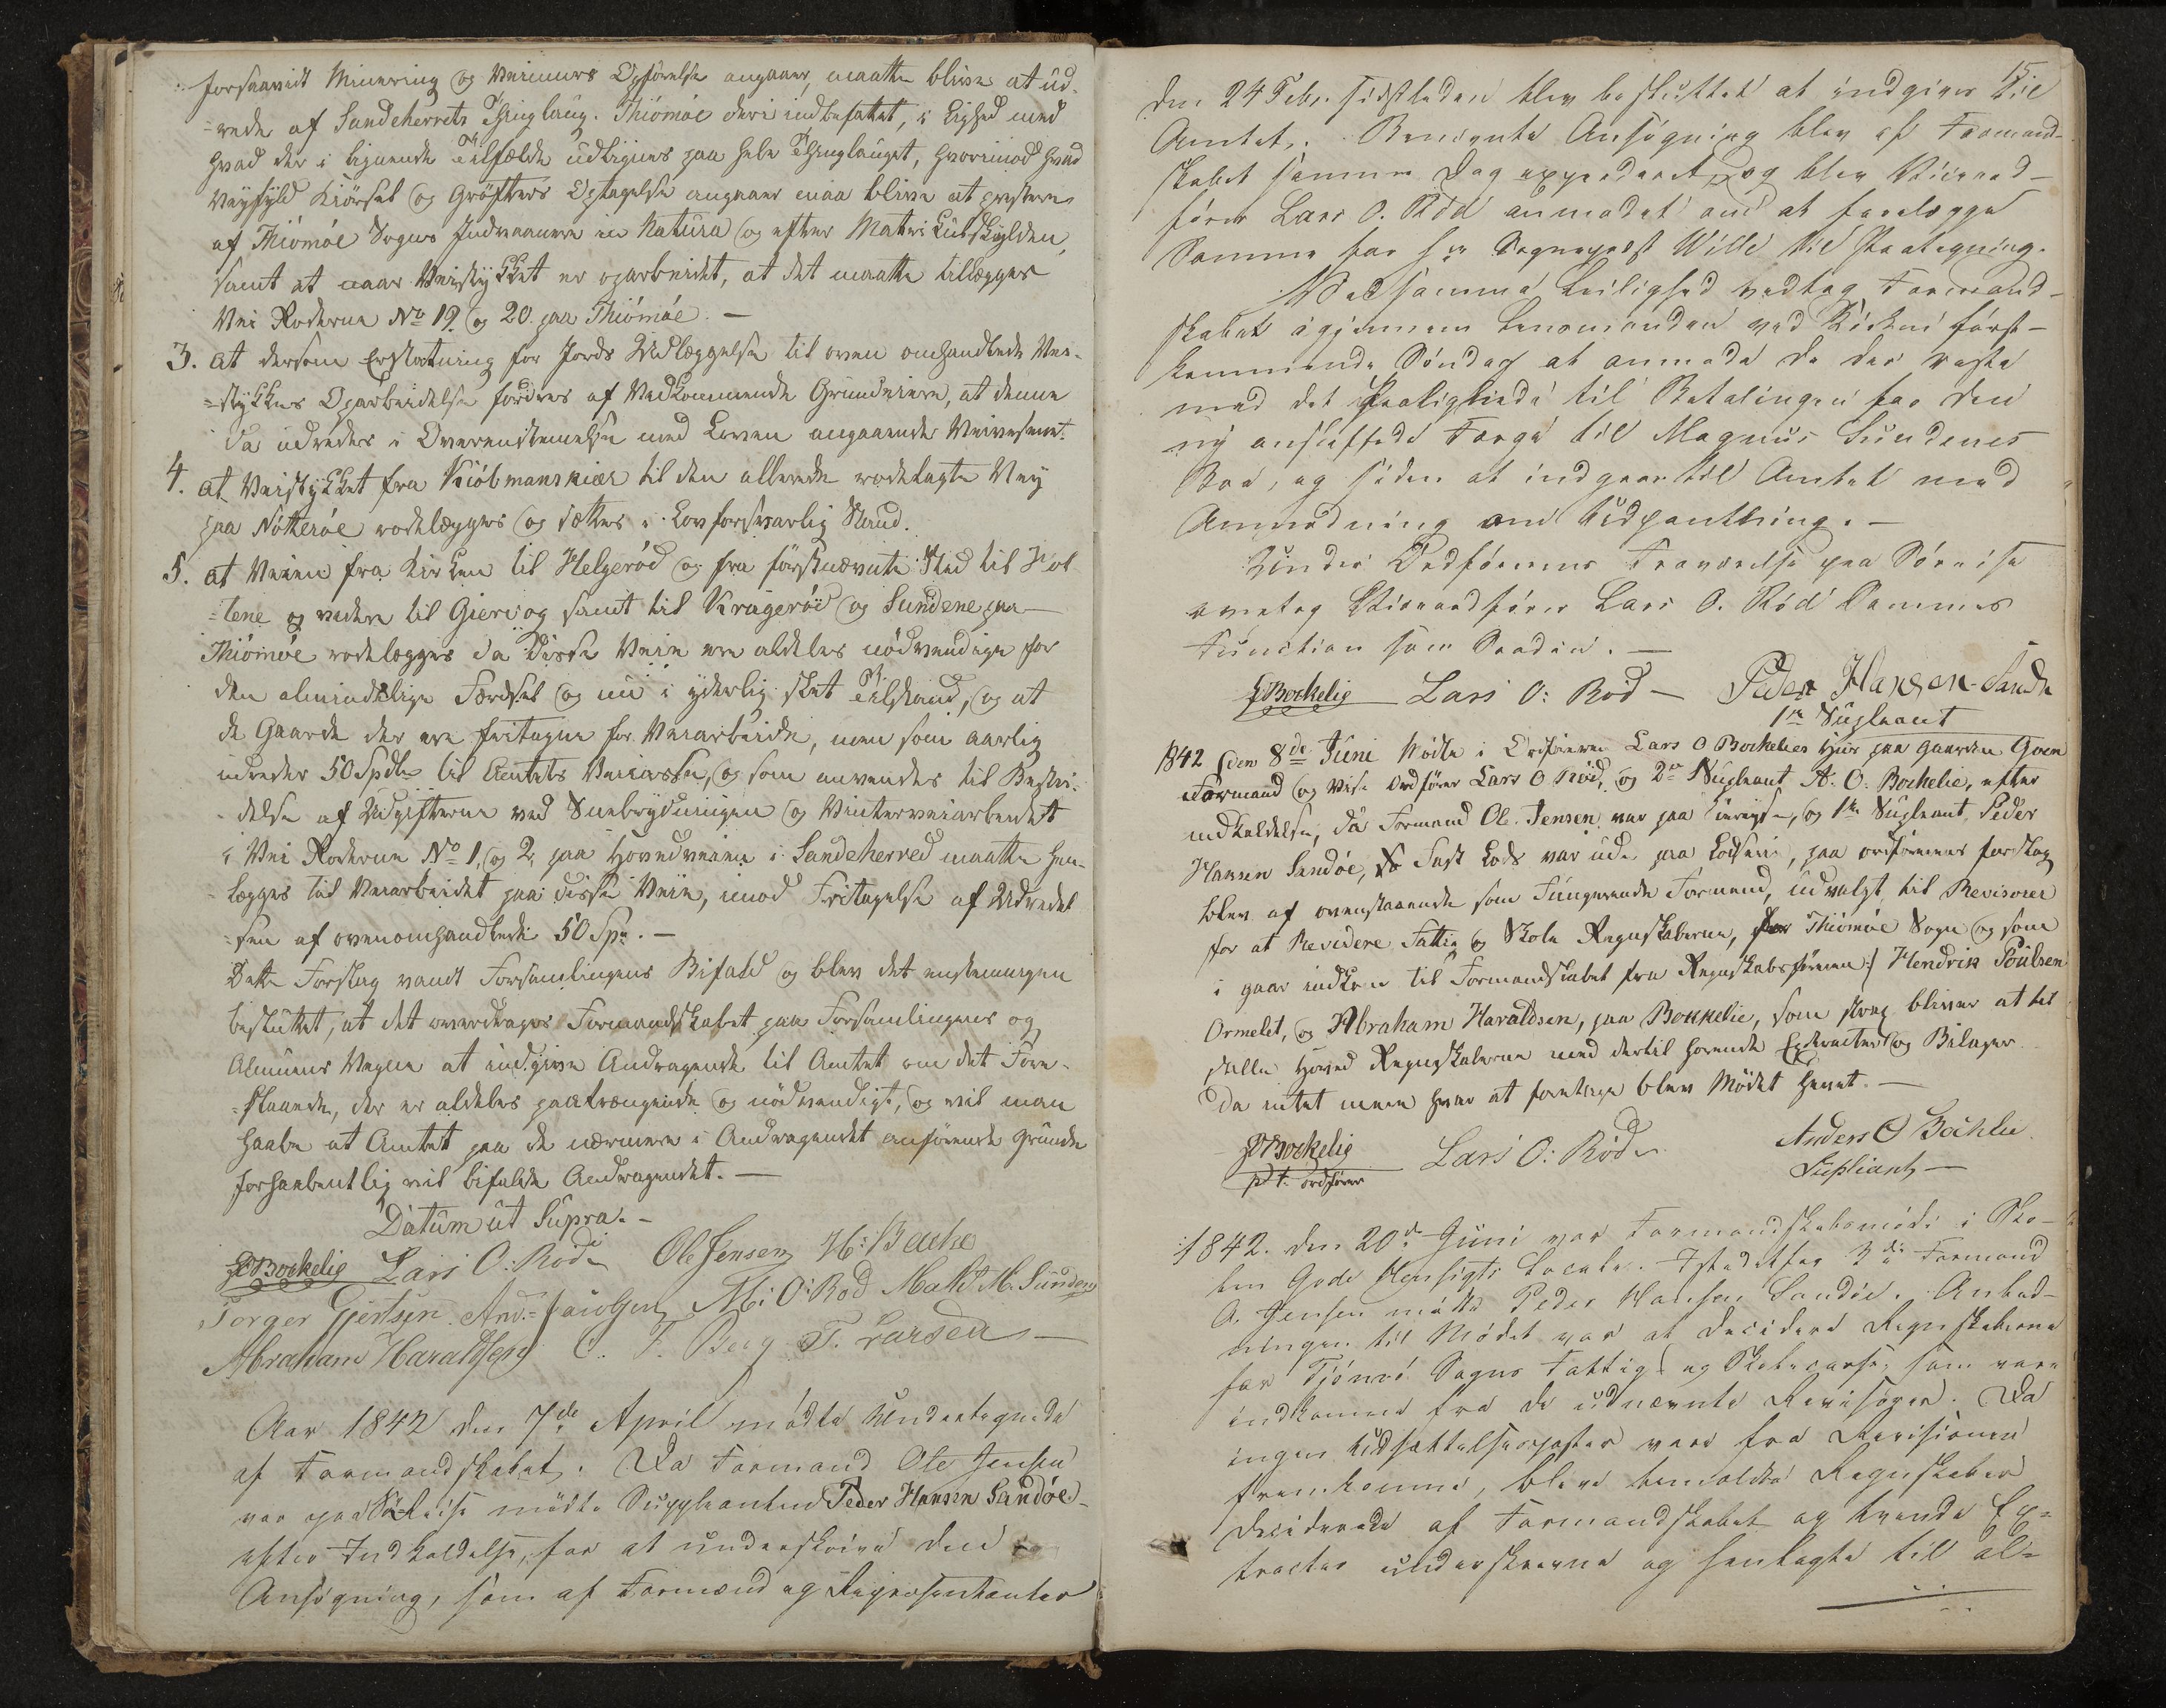 forsaavidt Minering og Veimurs Opførelse angaaer, maatte blive at ud-
=rede af Sandeherrets Thinglaug. Thiømøe deri indbefattet, i Lighed med
hvad der i lignende Tilfælde udlignes paa hele Thinglauget, hvorimod hvad
Veyfyld Kiørsel og Grøfters Optagelse angaaer maa blive at præstere
af Thiømøe Sogns Indvaanere in Natura og efter Matriculskylden,
samt at naar Veistykket er oparbeidet, at det maatte tillægges
Vei Roderne No 19. og 20. paa Thiømøe. —
3. at dersom Erstatning for Jords Udlæggelse til oven omhandlede Vei-
=stykkes Oparbeidelse fordres af Vedkommende Grundeiere, at denne
da udredes i Overenstemelse med Loven angaaende Veivesenet.
4. at Veistykket fra Kiøbmanskiær til den allerede rodelagte Vey
paa Nøtterøe rodelægges og sættes i Lovforsvarlig Stand.
5. at Veien fra Kirken til Helgerød og fra førstnævnte Sted til Hol
=tene og videre til Gierv og samt til Kragerøe og Sundene paa
Thiømøe rodelægges da disse Veie ere aldeles nødvendige for
den almindelige Færdsel og nu i yderlig slet Tilstand, og at
de Gaarde der ere fritagne for Veiarbeide, men som aarlig
udreder 50 Spdlr til Amtets Veicasse, og som anvendes til Bestri-
delse af Udgifterne ved Snebrydningen og Vinterveiarbeidet
i Vei Roderne No 1, og 2, paa Hovedveien i Sandeherred maatte hen-
lægges til Veiarbeidet paa disse Veie, imod Fritagelse af Udredel
=sen af ovenomhandlede 50 Spd. —
Dette Forslag vandt Forsamlingens Bifald og blev det enstemmigen
besluttet, at det overdrages Formandskabet paa Forsamlingens og
Almuens Vegne at indgive Andragende til Amtet om det Fore-
=staaende, der er aldeles paatrængende og nødvendigt, og vil man
haabe at Amtet paa de nærmere i Andragendet anførende Grunde
forhaabentlig vil bifalde Andragendet. —
Datum ut Supra. -
Bockelie Lars O: Rød Ole Jensen H: Bache
Torger Giertsen. And: Paulsen M: O: Rød Math M. Sundene
Abraham Haraldsen C. T. Berg T. Larsen —
Aar 1842 den 7de April mødte Undertegnede
af Formandskabet. Da Formand Ole Jensen
var paa Reise mødte Suppleanten Peder Hansen Sandøe
efter Indkaldelse, for at underskrive den
Ansøgning, som af Formænd og Repræsentanter
15.
den 24 Febr. sidstleden blev besluttet at indgives til
Amtet. Benævnte Ansøgning blev af Formand-
skabet samme Dag expederet, og blev Viceord-
fører Lars O. Rød anmodet om at forelægge
Samme for Hr Sognepræst Wille til Paategning.
Ved samme Leilighed vedtog Formand-
skabet igjennem Lensmanden ved Kirken først-
kommende Søndag at anmode de der reste
med det paalignede til Betalingen for den
ny anskaffede Færge til Magnus Sundenes
Boe, og siden at indgaae til Amtet med
Anmodning om Udpantning. —
Under Ordførerens Fraværelse paa Søreise
overtog Viceordfører Lars O. Rød Sammes
Function som Saadan. —
Bockelie Lars O: Rød — Peder Hansen Sandø
1ste Supleant
1842 den 8de Juni Mødte i Ordføreren Lars O Bockelies Huus paa Gaarden Goen
Formand og Vise Ordfører Lars O Rød, og 2den Supleant A. O. Bockelie, efter
indkaldelse, da Formand Ole Jensen var paa Enreise, og 1ste Supleant Peder
Hansen Sandøe, Fast Lods var ude paa Lodseri, paa ordførerens forslag
blev af ovenstaaende som Fungerende Formænd, udvalgt til Revisorer
for at Revidere Fattig og Skole Regnskaberne, for Thiømøe Sogn og som
i gaar indkom til Formandskabet fra Regnskabsføreren: Hendrik Poulsen
Ormelet, og Abraham Haraldsen, paa Bokkelie, som strax bliver at til
stille Hoved Regnskaberne med dertil hørende Extracter og Bilager
da intet mere hver at foretage blev Mødet hævet. —
Bockelie Lars O: Rød Anders O Bockelie
pt: ordfører Supliant —
1842. den 20de Juni var Formandskabsmøde i Sko-
len Gode Hensigts Locale. Istedetfor 3die Formand
O. Jensen mødte Peder Hansen Sandøe. Anled-
ningen til Mødet var at decidere Regnskaberne
for Tjømø Sogns Fattig og Skolecasse, som vare
indkomne fra de udnævnte Revisorer. Da
ingen Udsættelsesposter vare fra Revisionen
fremkomne, bleve bemeldte Regnskaber
deciderede af Formandskabet og tvende Ex-
tracter underskrevne og henlagte til al-